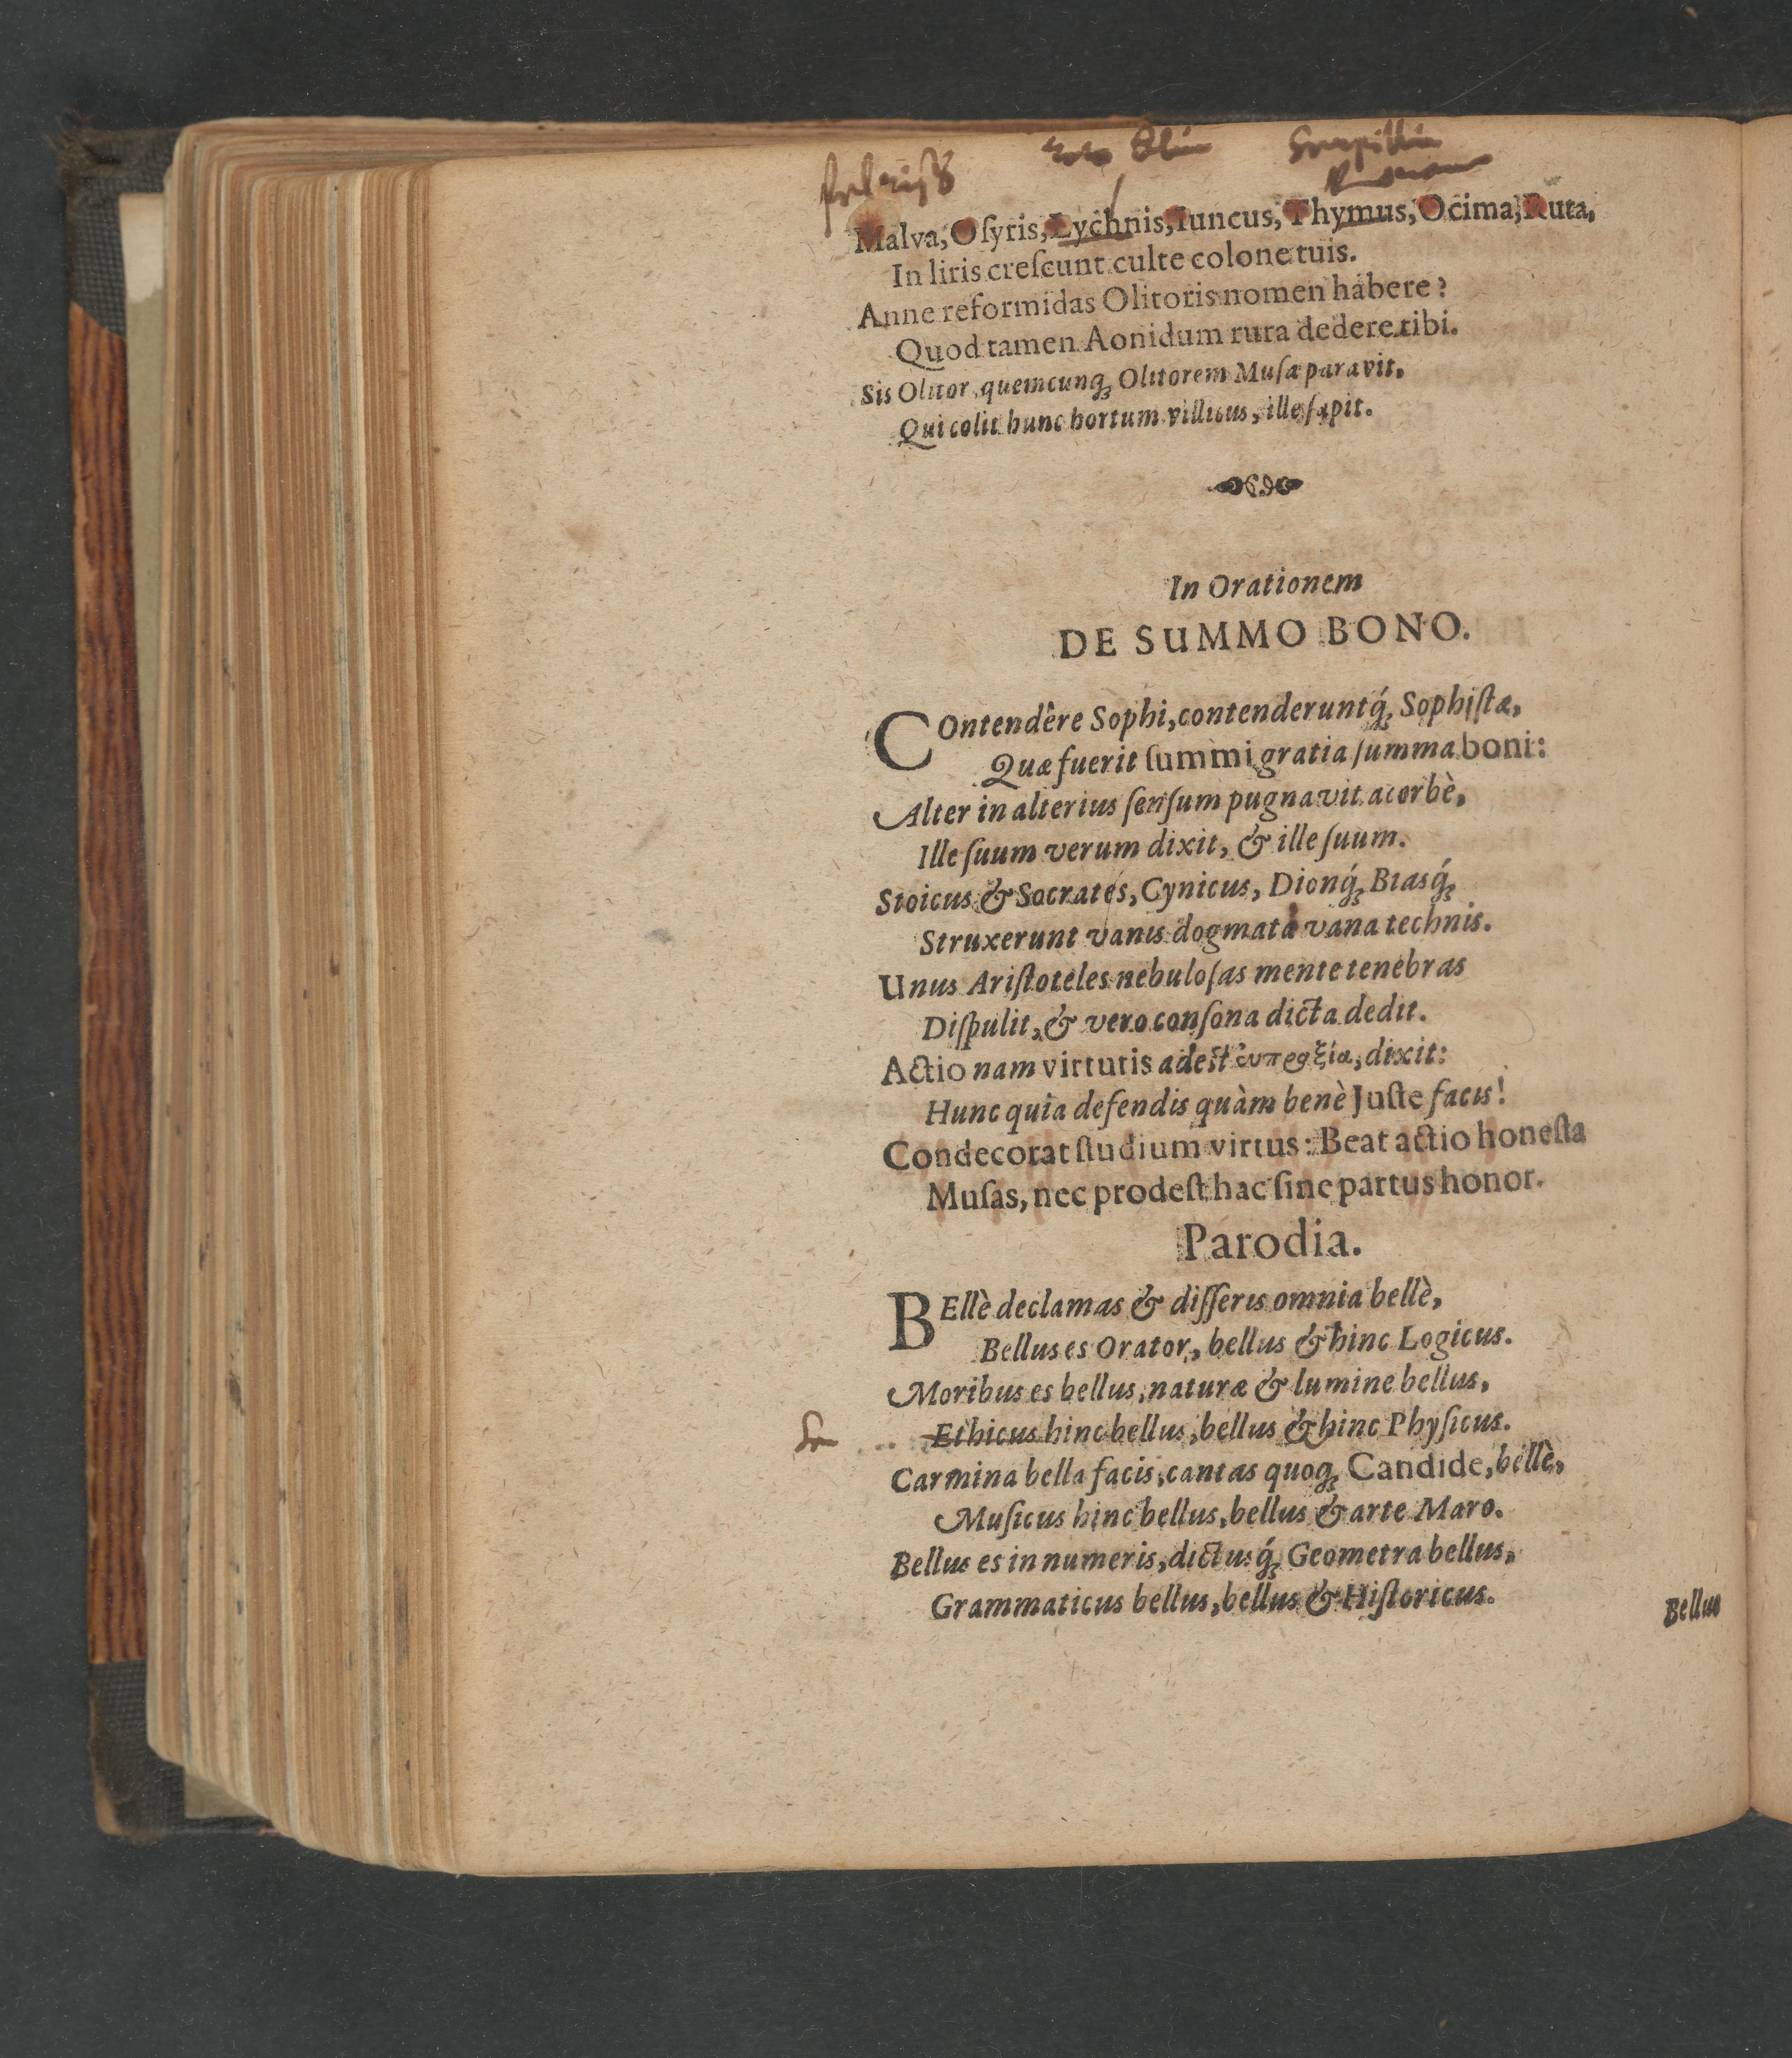 Malva, Oſyris, Lychnis, Iuncus, Thymus, Ocima, Ruta,
In liris creſcunt culte colone tuis.
Anne reformidas Olitoris nomen habere?
Quod tamen Aonidum rura dedere tibi.
Sis Olitor, quemcunq́; Olitorem Muſæ paravit,
Qui colit hunc hortum villicus, ille ſapit.
In Orationem
DE SUMMO BONO.
COntendêre Sophi, contenderuntq́; Sophiſtæ,
Quæ fuerit ſummi gratia ſumma boni:
Alter in alterius ſenſum pugnavit acerbè,
Ille ſuum verum dixit, & ille ſuum.
Stoicus & Socrates, Cynicus, Dionq́; Biasq́;
Struxerunt vanis dogmata vana technis.
Unus Ariſtoteles nebuloſas mente tenebras
Diſpulit, & vero conſona dicta dedit.
Actio nam virtutis adeſt ἐυπραξία, dixit:
Hunc quia defendis quàm benè Juſte facis!
Condecorat ſtudium virtus: Beat actio honeſta
Muſas, nec prodeſt hac ſine partus honor.
Parodia.
BEllè declamas & diſſeris omnia bellè,
Bellus es Orator, bellus & hinc Logicus.
Moribus es bellus, naturæ & lumine bellus,
Ethicus hinc bellus, bellus & hinc Phyſicus.
Carmina bella facis, cantas quoq; Candide, bellè,
Muſicus hinc bellus, bellus & arte Maro.
Bellus es in numeris, dictusq́; Geometra bellus,
Grammaticus bellus, bellus & Hiſtoricus.
Bellus